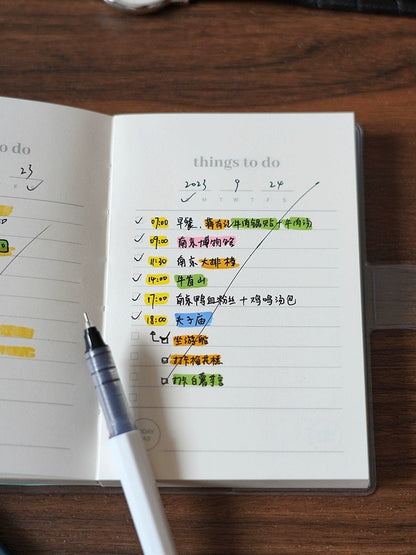 o do
23
things to do
2023 9 24
S M T W T F S
07:00 早餐, 蒋有记牛肉锅贴+牛肉汤
09:00 南京博物院
11:30 南京大排档
14:00 牛首山
17:00 南京鸭血粉丝+鸡鸣汤包
18:00 夫子庙
坐游船
打卡梅花糕
打卡白薯芋苗